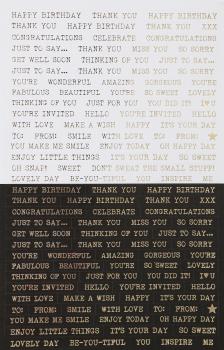 HAPPY BIRTHDAY THANK YOU HAPPY BIRTHDAY
HAPPY BIRTHDAY THANK YOU THANK YOU XXX
CONGRATULATIONS CELEBRATE CONGRATULATIONS
JUST TO SAY... THANK YOU MISS YOU SO SORRY
GET WELL SOON THINKING OF YOU JUST TO SAY...
JUST TO SAY... THANK YOU MISS YOU SO SORRY
YOU'RE WONDERFUL AMAZING GORGEOUS YOU'RE
FABULOUS BEAUTIFUL YOU'RE SO SWEET LOVELY
THINKING OF YOU JUST FOR YOU YOU DID IT! I♥U
YOU'RE INVITED HELLO YOU'RE INVITED HELLO
WITH LOVE MAKE A WISH HAPPY IT'S YOUR DAY
TO: FROM: SMILE WITH LOVE TO: FROM: ★
YOU MAKE ME SMILE ENJOY TODAY OH HAPPY DAY
ENJOY LITTLE THINGS IT'S YOUR DAY SO SWEET
OH SNAP! SWEET DON'T SWEAT THE SMALL STUFF!
LOVELY DAY BE-YOU-TIFUL YOU INSPIRE ME
HAPPY BIRTHDAY THANK YOU HAPPY BIRTHDAY
HAPPY BIRTHDAY THANK YOU THANK YOU XXX
CONGRATULATIONS CELEBRATE CONGRATULATIONS
JUST TO SAY... THANK YOU MISS YOU SO SORRY
GET WELL SOON THINKING OF YOU JUST TO SAY...
JUST TO SAY... THANK YOU MISS YOU SO SORRY
YOU'RE WONDERFUL AMAZING GORGEOUS YOU'RE
FABULOUS BEAUTIFUL YOU'RE SO SWEET LOVELY
THINKING OF YOU JUST FOR YOU YOU DID IT! I♥U
YOU'RE INVITED HELLO YOU'RE INVITED HELLO
WITH LOVE MAKE A WISH HAPPY IT'S YOUR DAY
TO: FROM: SMILE WITH LOVE TO: FROM: ★
YOU MAKE ME SMILE ENJOY TODAY OH HAPPY DAY
ENJOY LITTLE THINGS IT'S YOUR DAY SO SWEET
LOVELY DAY BE-YOU-TIFUL YOU INSPIRE ME